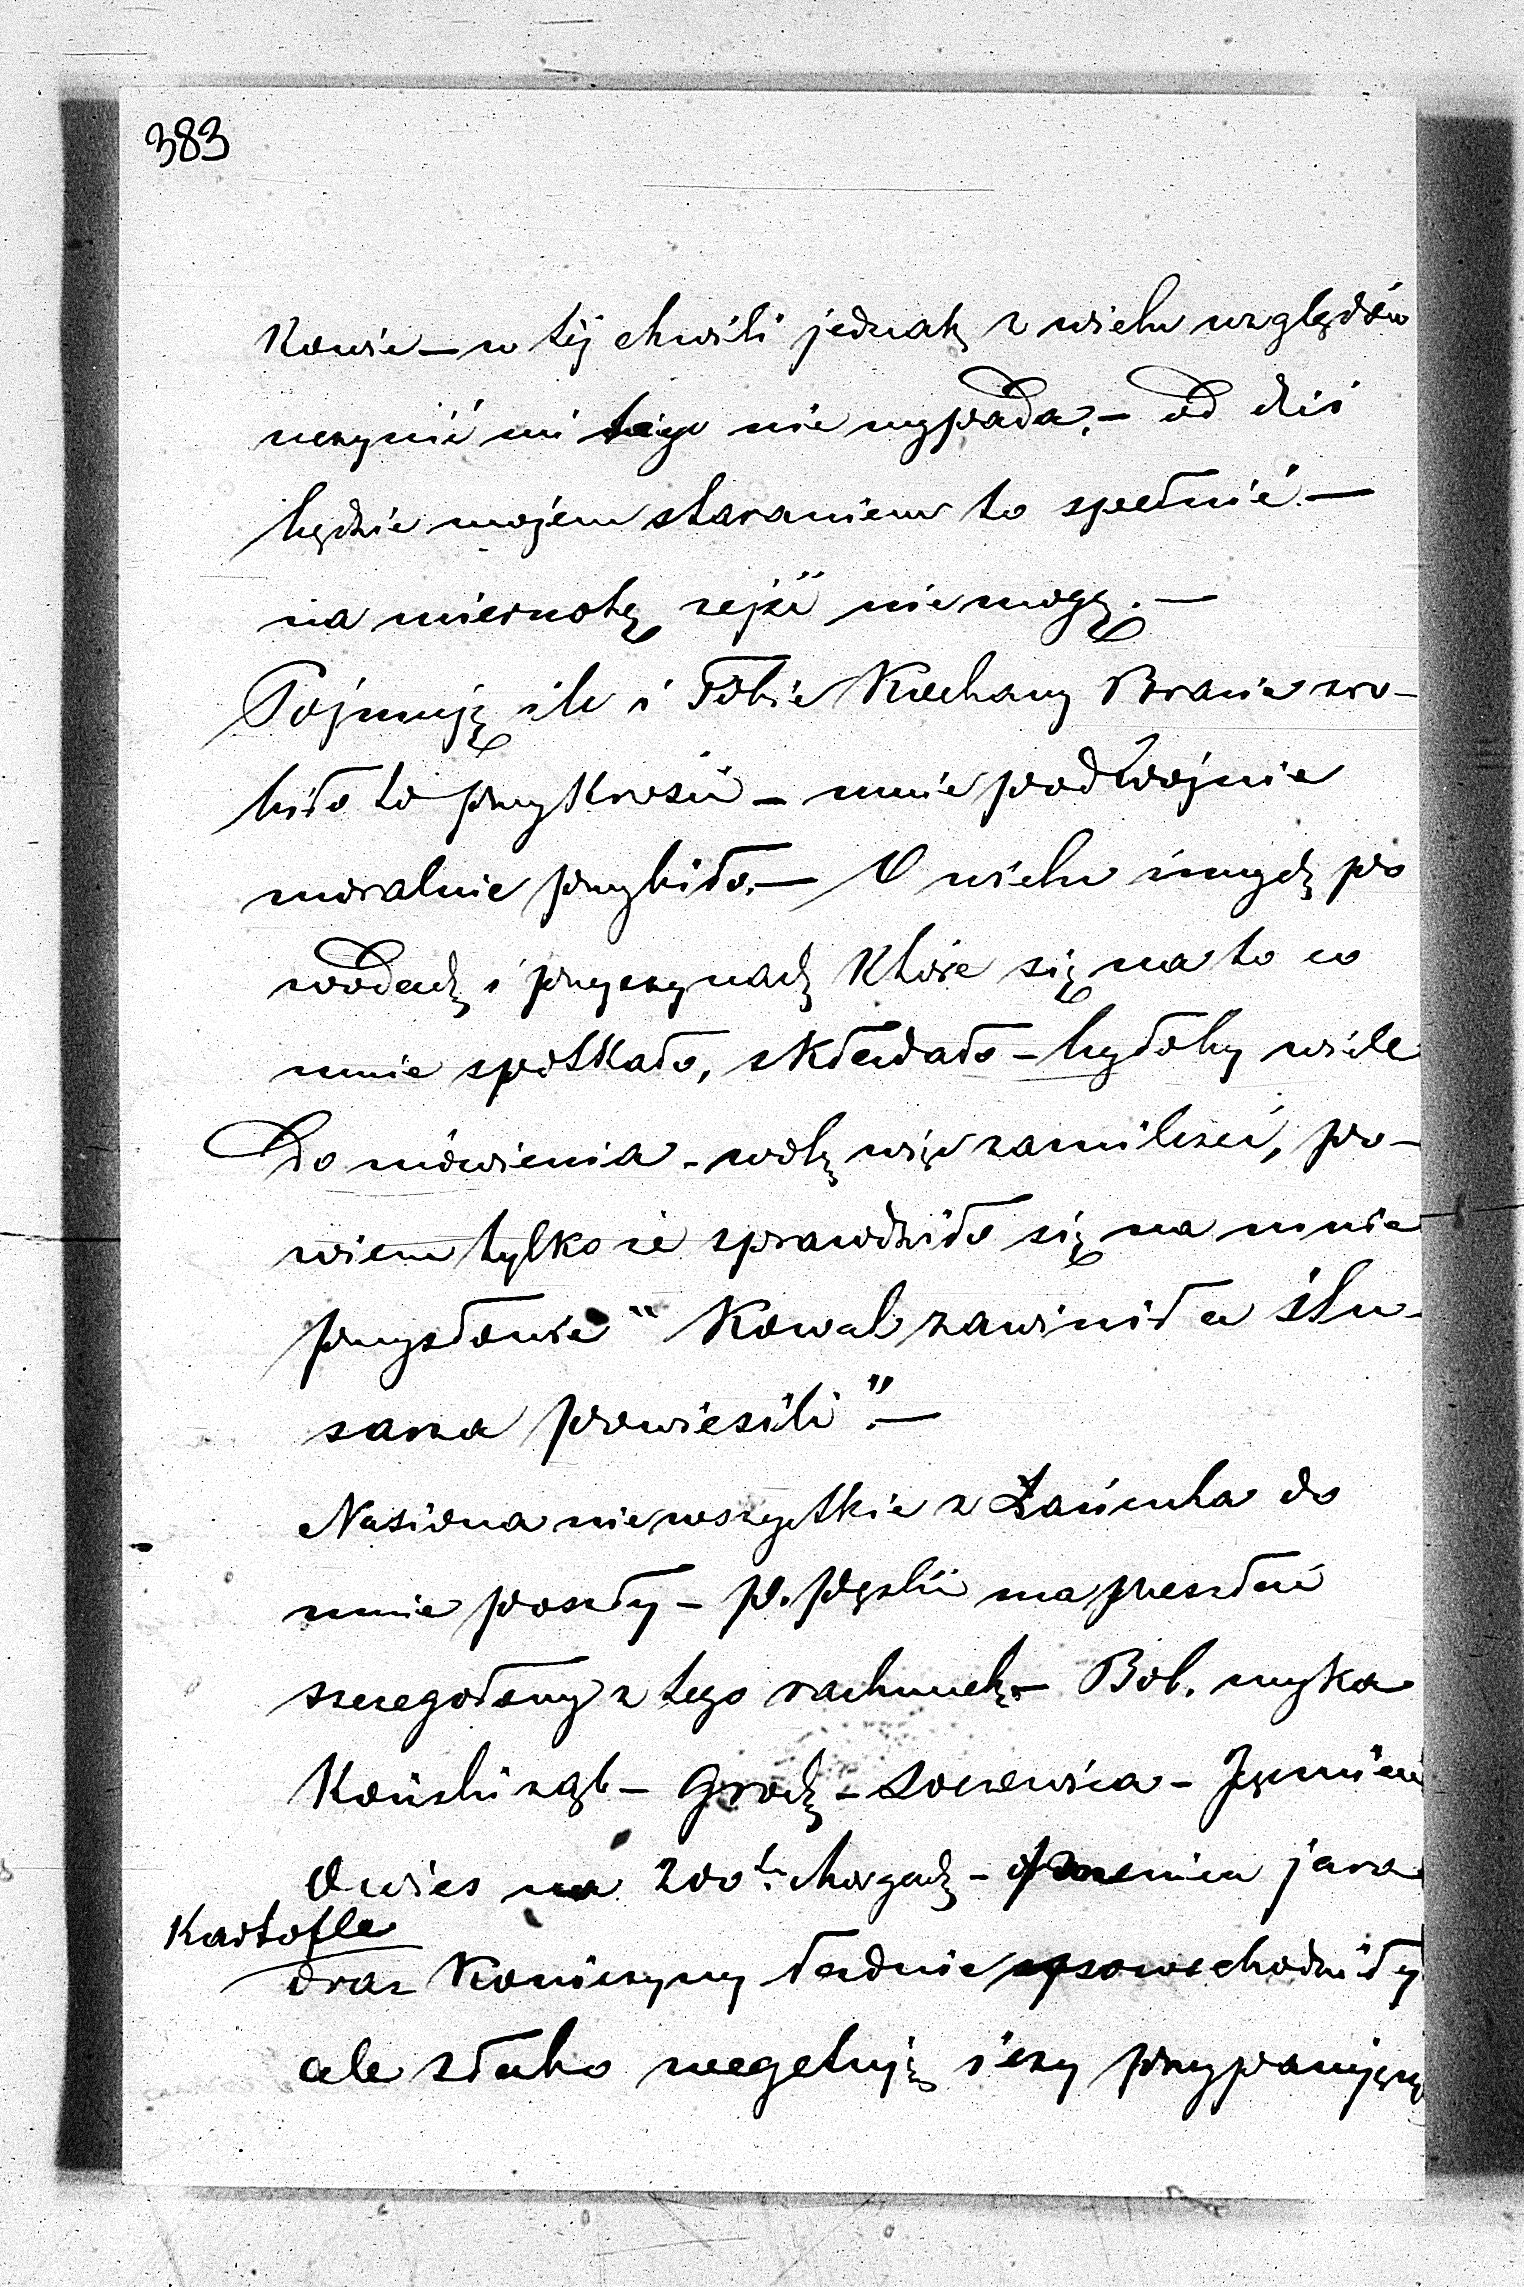 383
Kowie – w téj chwili jednak z wielu względów
uczynić mi tego nie wypada, – od dziś
będzie mojem staraniem to spełnić. –
na miernotę zejść nie mogę. –
Pojmuję ile i Tobie Kochany Bracie zro-
biło to przykrości – mnie podwójnie
moralnie przybiło. – O wielu innych po
wodach i przyczynach które się na to co
mnie spotkało, składało – byłoby wiele
do mówienia – wolę więc zamilczeć, po-
wiem tylko że sprawdziło się na mnie
przysłowie "Kowal zawinił a ślu-
sarza powiesili". –
Nasiona nie wszystkie z Łańcuta do
mnie poszły – p. ma przesłać
szczegółowy z tego rachunek. – Bob. wyka
Koński ząb – Groch – Soczewica – Jęczmień
Owies na 200tu morgach – pszenica jara
Kartofle
oraz Koniczyny ładnie powschodziły
ale słabo wegetują i czy przypanują